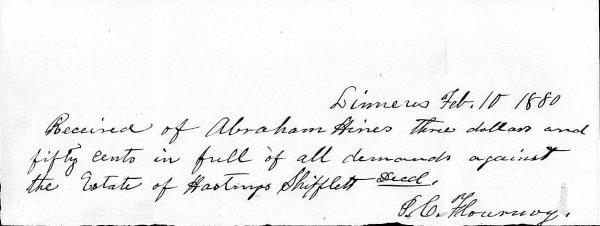 Linneus Feb. 10 1880
Received of Abraham Hines three dollars and
fifty cents in full of all demands against
the Estate of Hastings Shifflett Decd.
P. C. Flournoy.